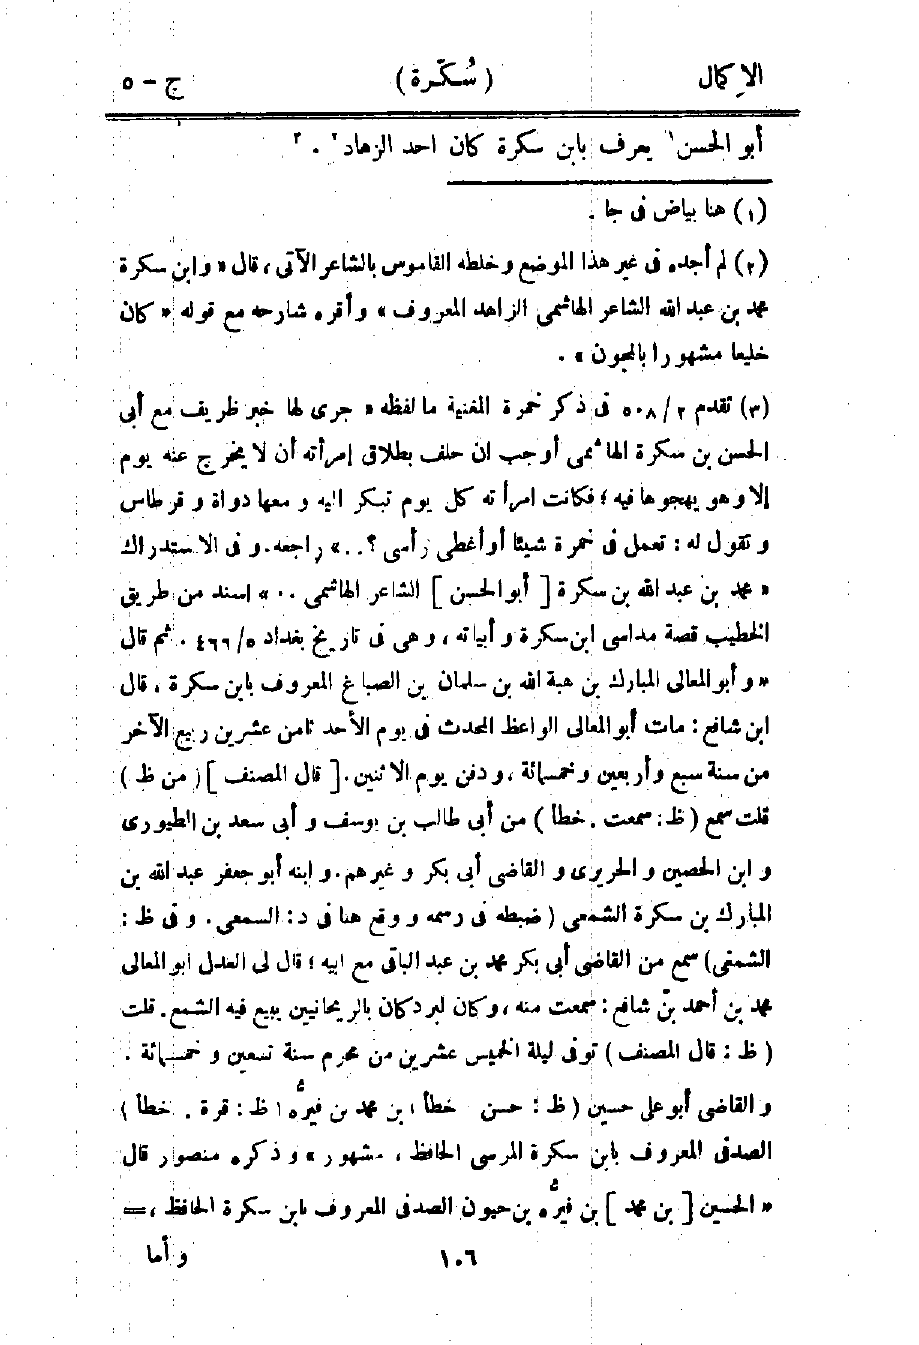 الإكمال (سُكّرة) ج - ٥
أبو الحسن١ يعرف بابن سكرة كان احد الزهاد٢ . ٣
(١) هنا بياض فى جا .
(٢) لم أجده فى غير هذا الموضع و خلطه القاموس بالشاعر الآتى ، قال « و ابن سكرة
محمد بن عبد الله الشاعر الهاشمى الزاهد المعروف » و أقره شارحه مع قوله « كان
خليعا مشهورا بالمجون » .
(٣) تقدم ٢ / ٥٠٨ فى ذكر خمرة المغنية ما لفظه « جرى لها خبر ظريف مع أبى
الحسن بن سكرة الهاشمى أوجب ان حلف بطلاق إمرأته أن لا يخرج عنه يوم
إلا و هو يهجوها فيه ؛ فكانت امرأته كل يوم تبكر اليه و معها دواة و قرطاس
و تقول له : تعمل فى خمرة شيئا أو أغطى رأسى ؟ . . » راجعه . و فى الاستدراك
« محمد بن عبد الله بن سكرة [ أبو الحسن ] الشاعر الهاشمى . . » اسند من طريق
الخطيب قصة مداسى ابن سكرة و أبياته ، و هى فى تاريخ بغداد ٥ / ٤٦٦ . ثم قال
« و أبو المعالى المبارك بن هبة الله بن سلمان بن الصباغ المعروف بابن سكرة ، قال
ابن شافع : مات أبو المعالى الواعظ المحدث فى يوم الأحد ثامن عشرين ربيع الآخر
من سنة سبع و أربعين و خمسمائة ، و دفن يوم الاثنين . [ قال المصنف ] ( من ظ )
قلت سمع ( ظ : سمعت . خطأ ) من أبى طالب بن يوسف و أبى سعد بن الطيورى
و ابن الحصين و الحريرى و القاضى أبى بكر و غيرهم . و ابنه أبو جعفر عبد الله بن
المبارك بن سكرة الشمعى ( ضبطه فى رسمه و وقع هنا فى د : السمعى . و فى ظ :
الشمقى ) سمع من القاضى أبى بكر محمد بن عبد الباقى مع ابيه ؛ قال لى العدل ابو المعالى
محمد بن أحمد بن شافع : سمعت منه ، و كان لبر دكان بالريحانيين يبيع فيه الشمع . قلت
( ظ : قال المصنف ) توفى ليلة الخميس عشرين من محرم سنة تسعين و خمسمائة .
و القاضى أبو على حسين ( ظ : حسن خطأ ) بن محمد بن فيرُّه ( ظ : قرة . خطأ )
الصدفى المعروف بابن سكرة المرسى الحافظ ، مشهور » و ذكره منصور قال
« الحسين [ بن محمد ] بن فيرُّه بن حيون الصدفى المعروف بابن سكرة الحافظ ، =
١٠٦ و أما